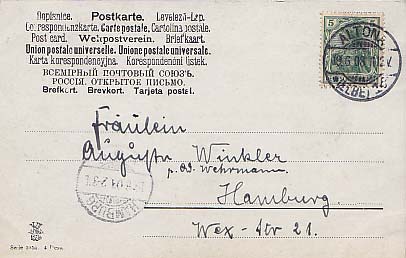 Dopisnice. Postkarte. Levelező-Lap.
Correspondenzkarte. Carte postale. Cartolina postale.
Post card. Weltpostverein. Briefkaart.
Union postale universelle. Unione postale universale.
Karta korespondencyjna. Korespondenční lístek.
ВСЕМІРНЫЙ ПОЧТОВЫЙ СОЮЗЪ.
РОССІЯ. ОТКРЫТОЕ ПИСЬМО.
Brefkort. Brevkort. Tarjeta postal.
5 5
ALTONA
Fräulein
Auguste Winkler
p. ad. Wehrmann.
HAMBURG
Hamburg.
Wex-Str 21.
Serie